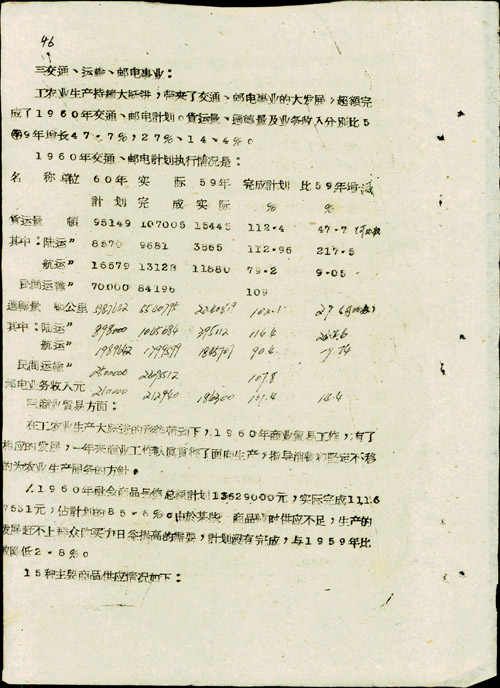 46
三交通、运输、邮电事业:
工农业生产持续大跃进,带来了交通、邮电事业的大发展,超额完
成了1960年交通、邮电计划。货运量、周转量及业务收入分别比5
9年增长47·7%,27%、14·4%。
1960年交通、邮电计划执行情况是:
名 称 单位 60年 实 际 59年 完成计划 比59年增
计划 完 成 实际 % %
货运量 吨 95149 107005 15445 112·4 47·7
其中:陆运〃 8570 9681 3565 112·96 217·5
航运〃 16579 13128 11880 79·2 9·05
民间运输〃 70000 84196 109
周转量 吨公里 27
其中:陆运〃 898000
航运〃
民间运输〃 107.8
邮电业务收入元 210000 212940 101.4 14.4
四商业贸易方面:
在工农业生产大跃进的形势带动下,1960年商业贸易工作,有了
相应的发展,一年来商业工作认真贯彻了面向生产,指导消费和坚定不移
的为农业生产服务的方针。
1.1960年社会商品零售总额计划13629000元,实际完成11167
551元,占计划的85·8%。由于某些 商品暂时供应不足,生产的
发展赶不上群众购买力日益提高的需要,计划没有完成,与1959年比
较降低2·8%。
15种主要商品供应情况如下: